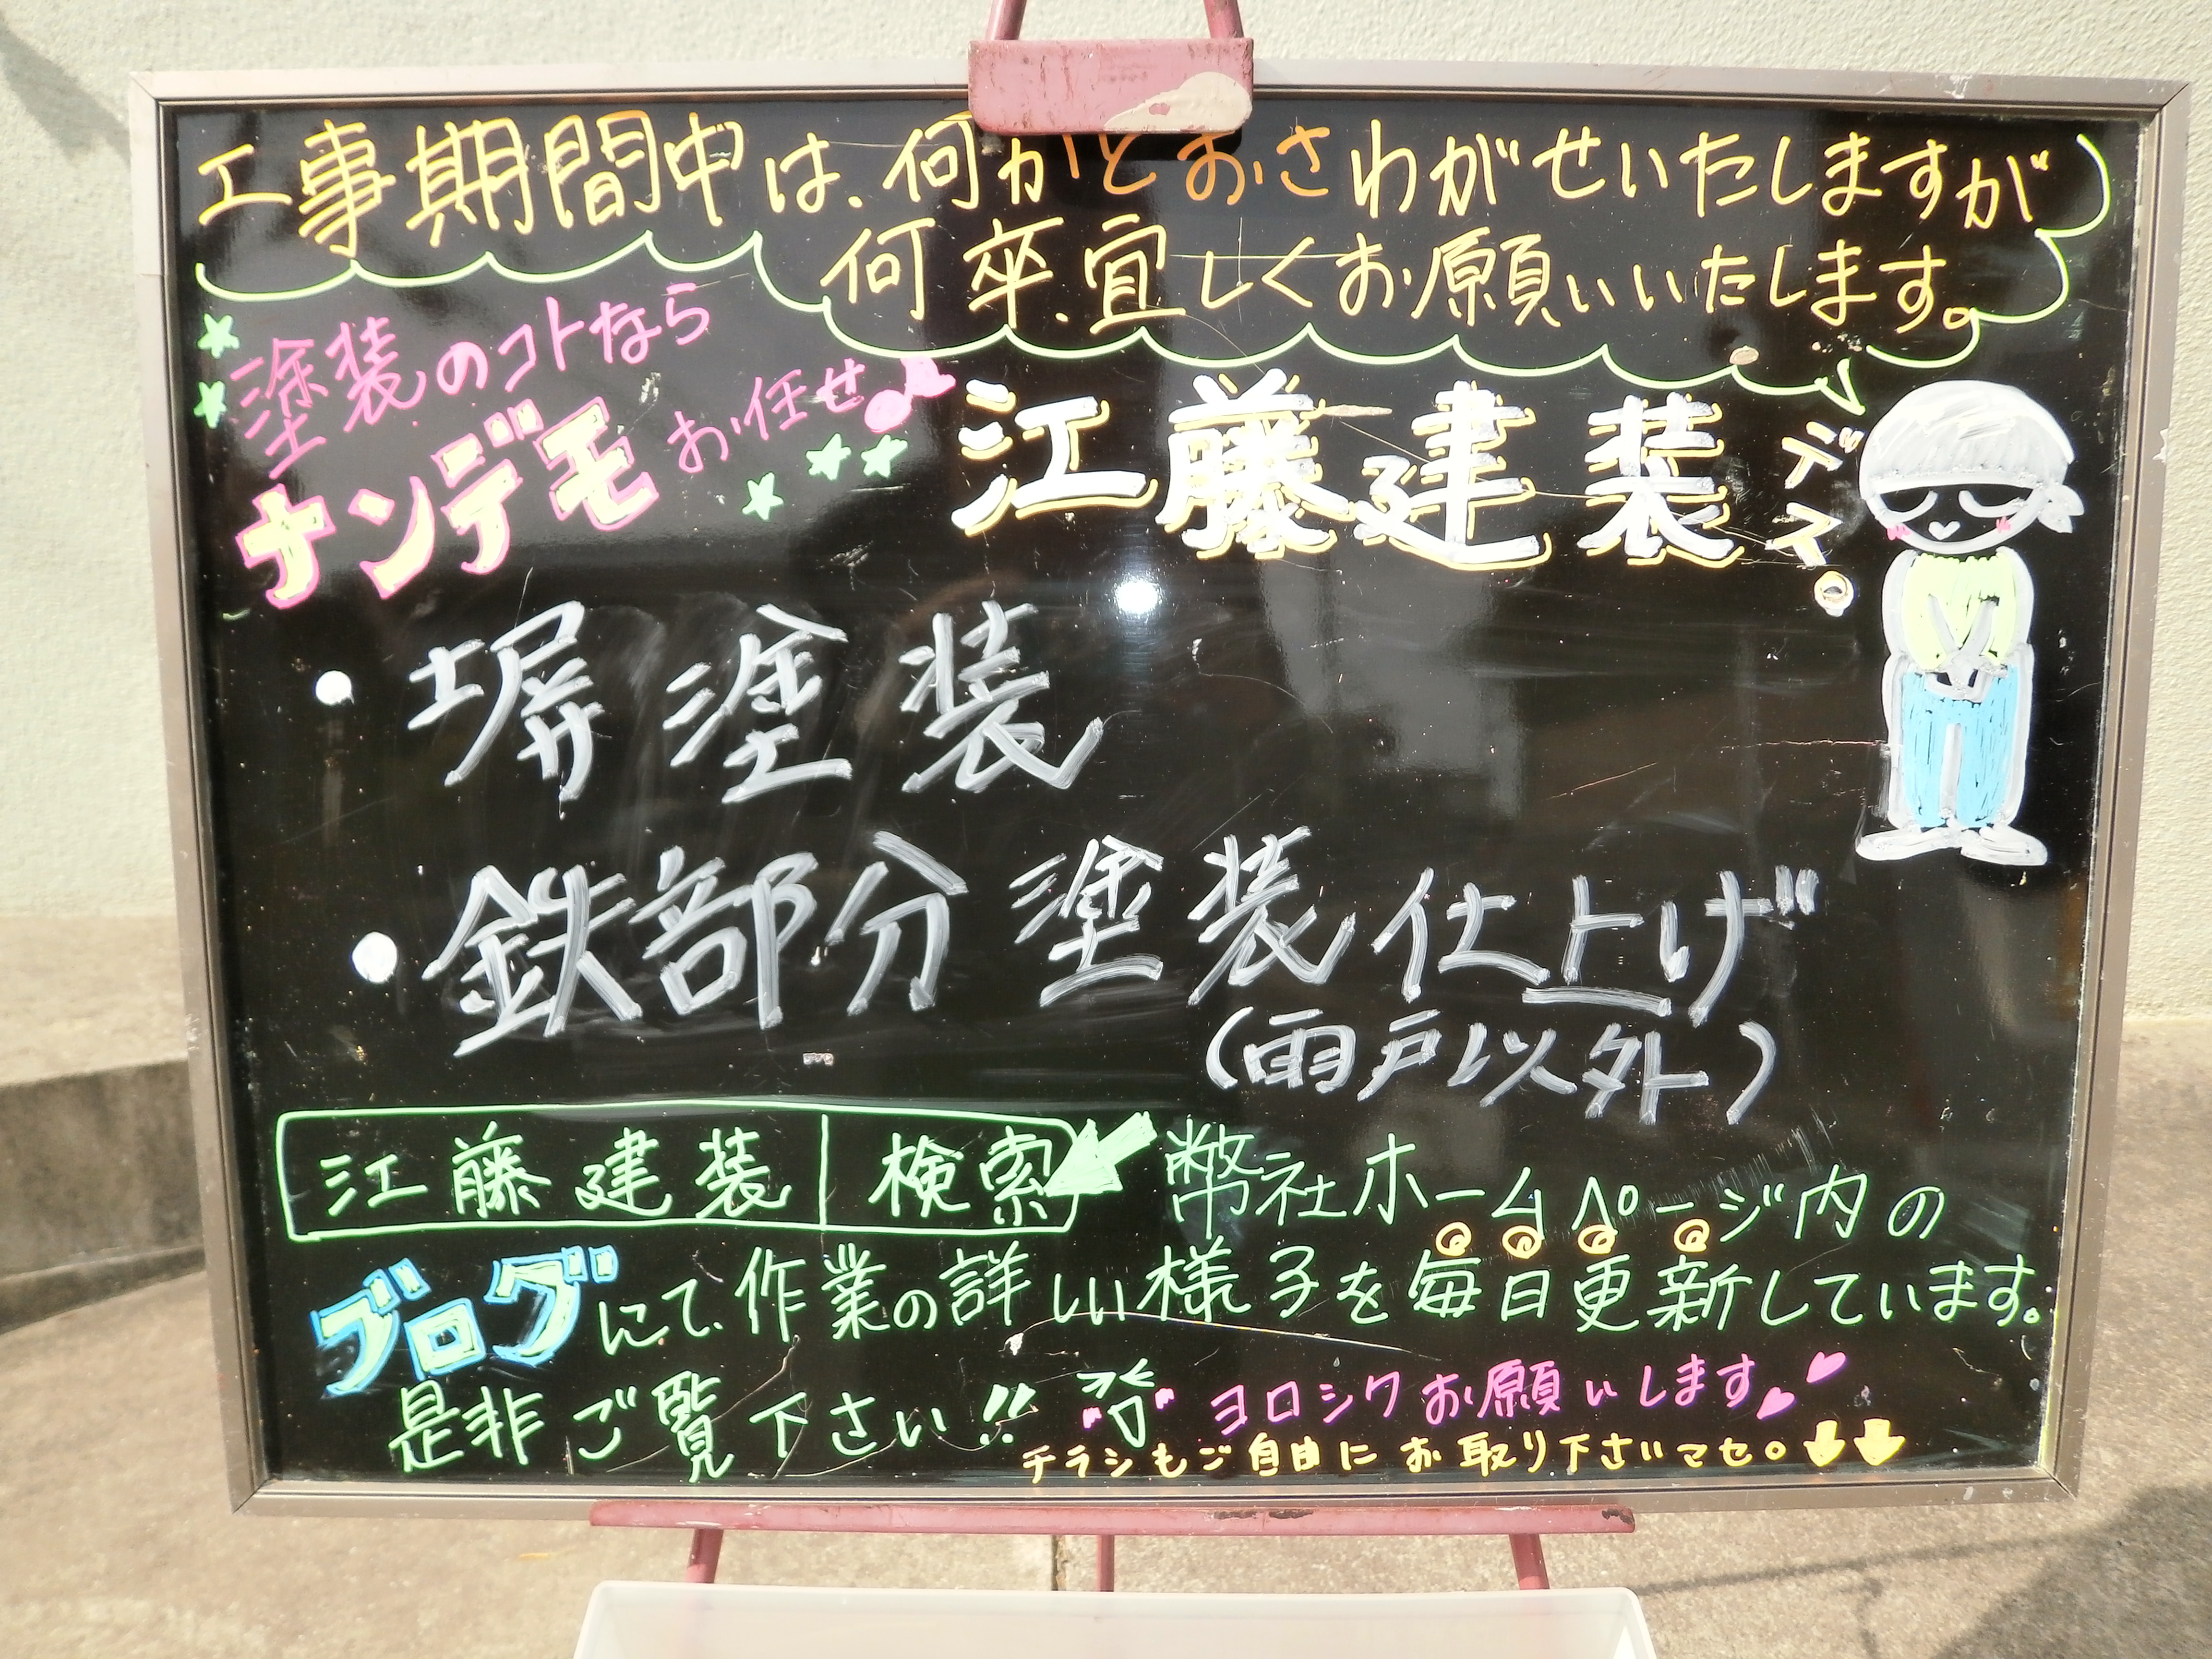 工事期間中は、何かとおさわがせいたしますが
何卒、宜しくお願いいたします。
塗装のコトなら
ナンデモお任せ♪
江藤建装デス。
・塀塗装
・鉄部分塗装仕上げ
(雨戸以外)
江藤建装|検索
弊社ホームページ内の
ブログにて、作業の詳しい様子を毎日更新しています。
是非ご覧下さい!!
ヨロシクお願いします
チラシもご自由にお取り下さいマセ。